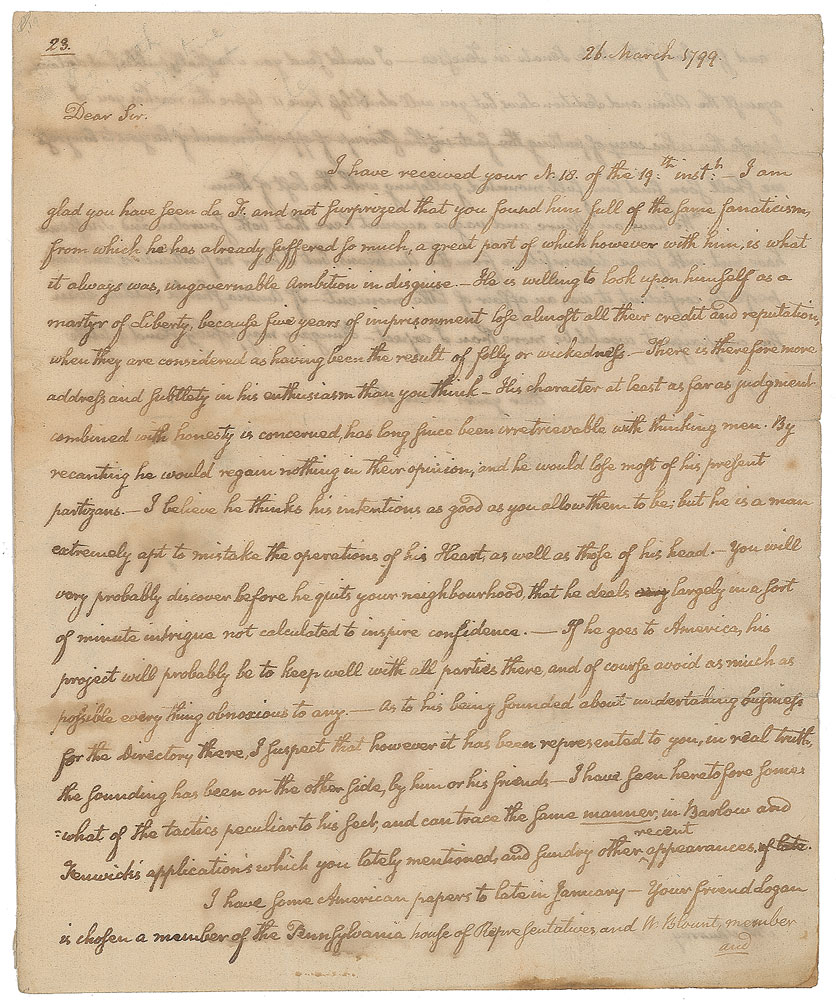 23.
26. March 1799.
Dear Sir.
I have received your N. 18. of the 19.th inst.t — I am
glad you have seen la F. and not surprized that you found him full of the same fanaticism,
from which he has already suffered so much, a great part of which however with him, is what
it always was, ungovernable Ambition in disguise. — He is willing to look upon himself as a
martyr of Liberty, because five years of imprisonment lose almost all their credit and reputation,
when they are considered as having been the result of folly or wickedness. — There is therefore more
address and subtlety in his enthusiasm than you think — His character at least as far as judgment
combined with honesty is concerned, has long since been irretrievable with thinking men. By
recanting he would regain nothing in their opinion, and he would lose most of his present
partizans. — I believe he thinks his intentions as good as you allow them to be; but he is a man
extremely apt to mistake the operations of his Heart, as well as those of his head. — You will
very probably discover before he quits your neighbourhood, that he deals very largely in a sort
of minute intrigue not calculated to inspire confidence. — If he goes to America, his
project will probably be to keep well with all parties there, and of course avoid as much as
possible every thing obnoxious to any. — As to his being sounded about undertaking business
for the Directory there, I suspect that however it has been represented to you, in real truth,
the sounding has been on the other side, by him or his friends — I have seen heretofore some=
=what of the tactics peculiar to his sect, and can trace the same manner, in Barlow and
Fenwick's applications which you lately mentioned, and sundry other recent appearances of late.
I have some American papers to late in January — Your friend Logan
is chosen a member of the Pennsylvania house of Representatives, and W. Blount, member
and